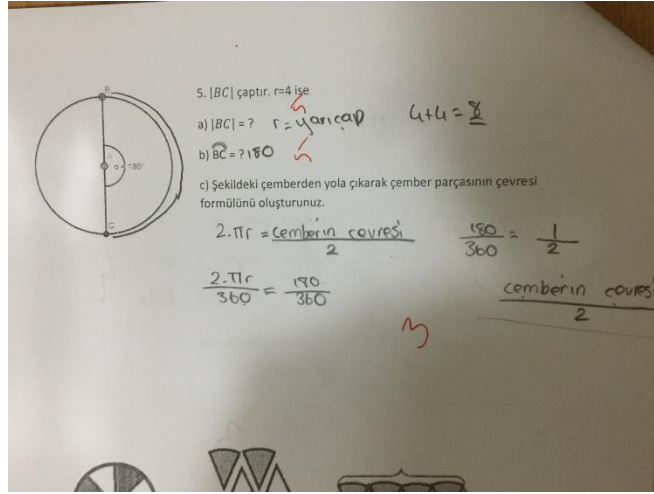 B
5. |BC| çaptır. r=4 ise
a) |BC| = ? r = yarıçap 4+4 = 8
A
α = 180°
b) BC = ? 180
c) Şekildeki çemberden yola çıkarak çember parçasının çevresi
formülünü oluşturunuz.
C
2.πr = çemberin çevresi / 2 180/360 = 1/2
2.πr/360 = 180/360 çemberin çevresi / 2